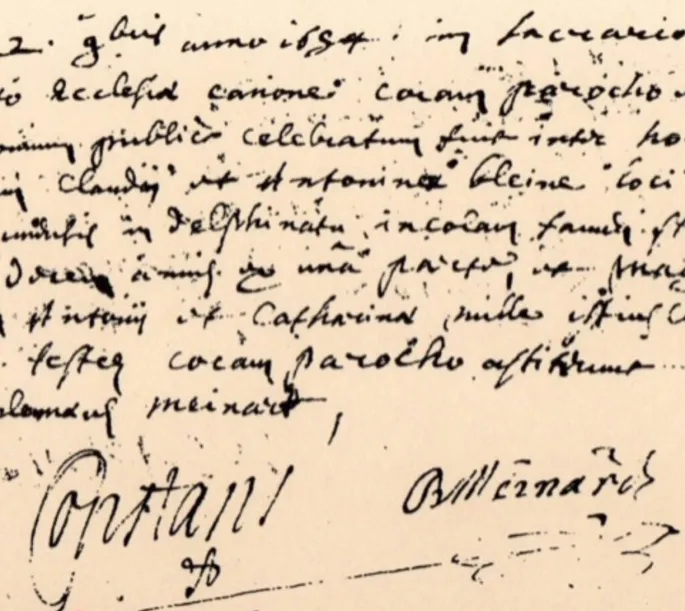 2. 9bris anno 1684. in sacrario
ecclesiæ canone coram parocho
publice celebratum fuit inter ho
Claudii et Antoninæ bleine loci
in delphinatu incolam
annis ex unâ parte, et
Antonii et Catharinæ mille istius
testes coram parocho astiterunt
meinard
Constans
B Meinard